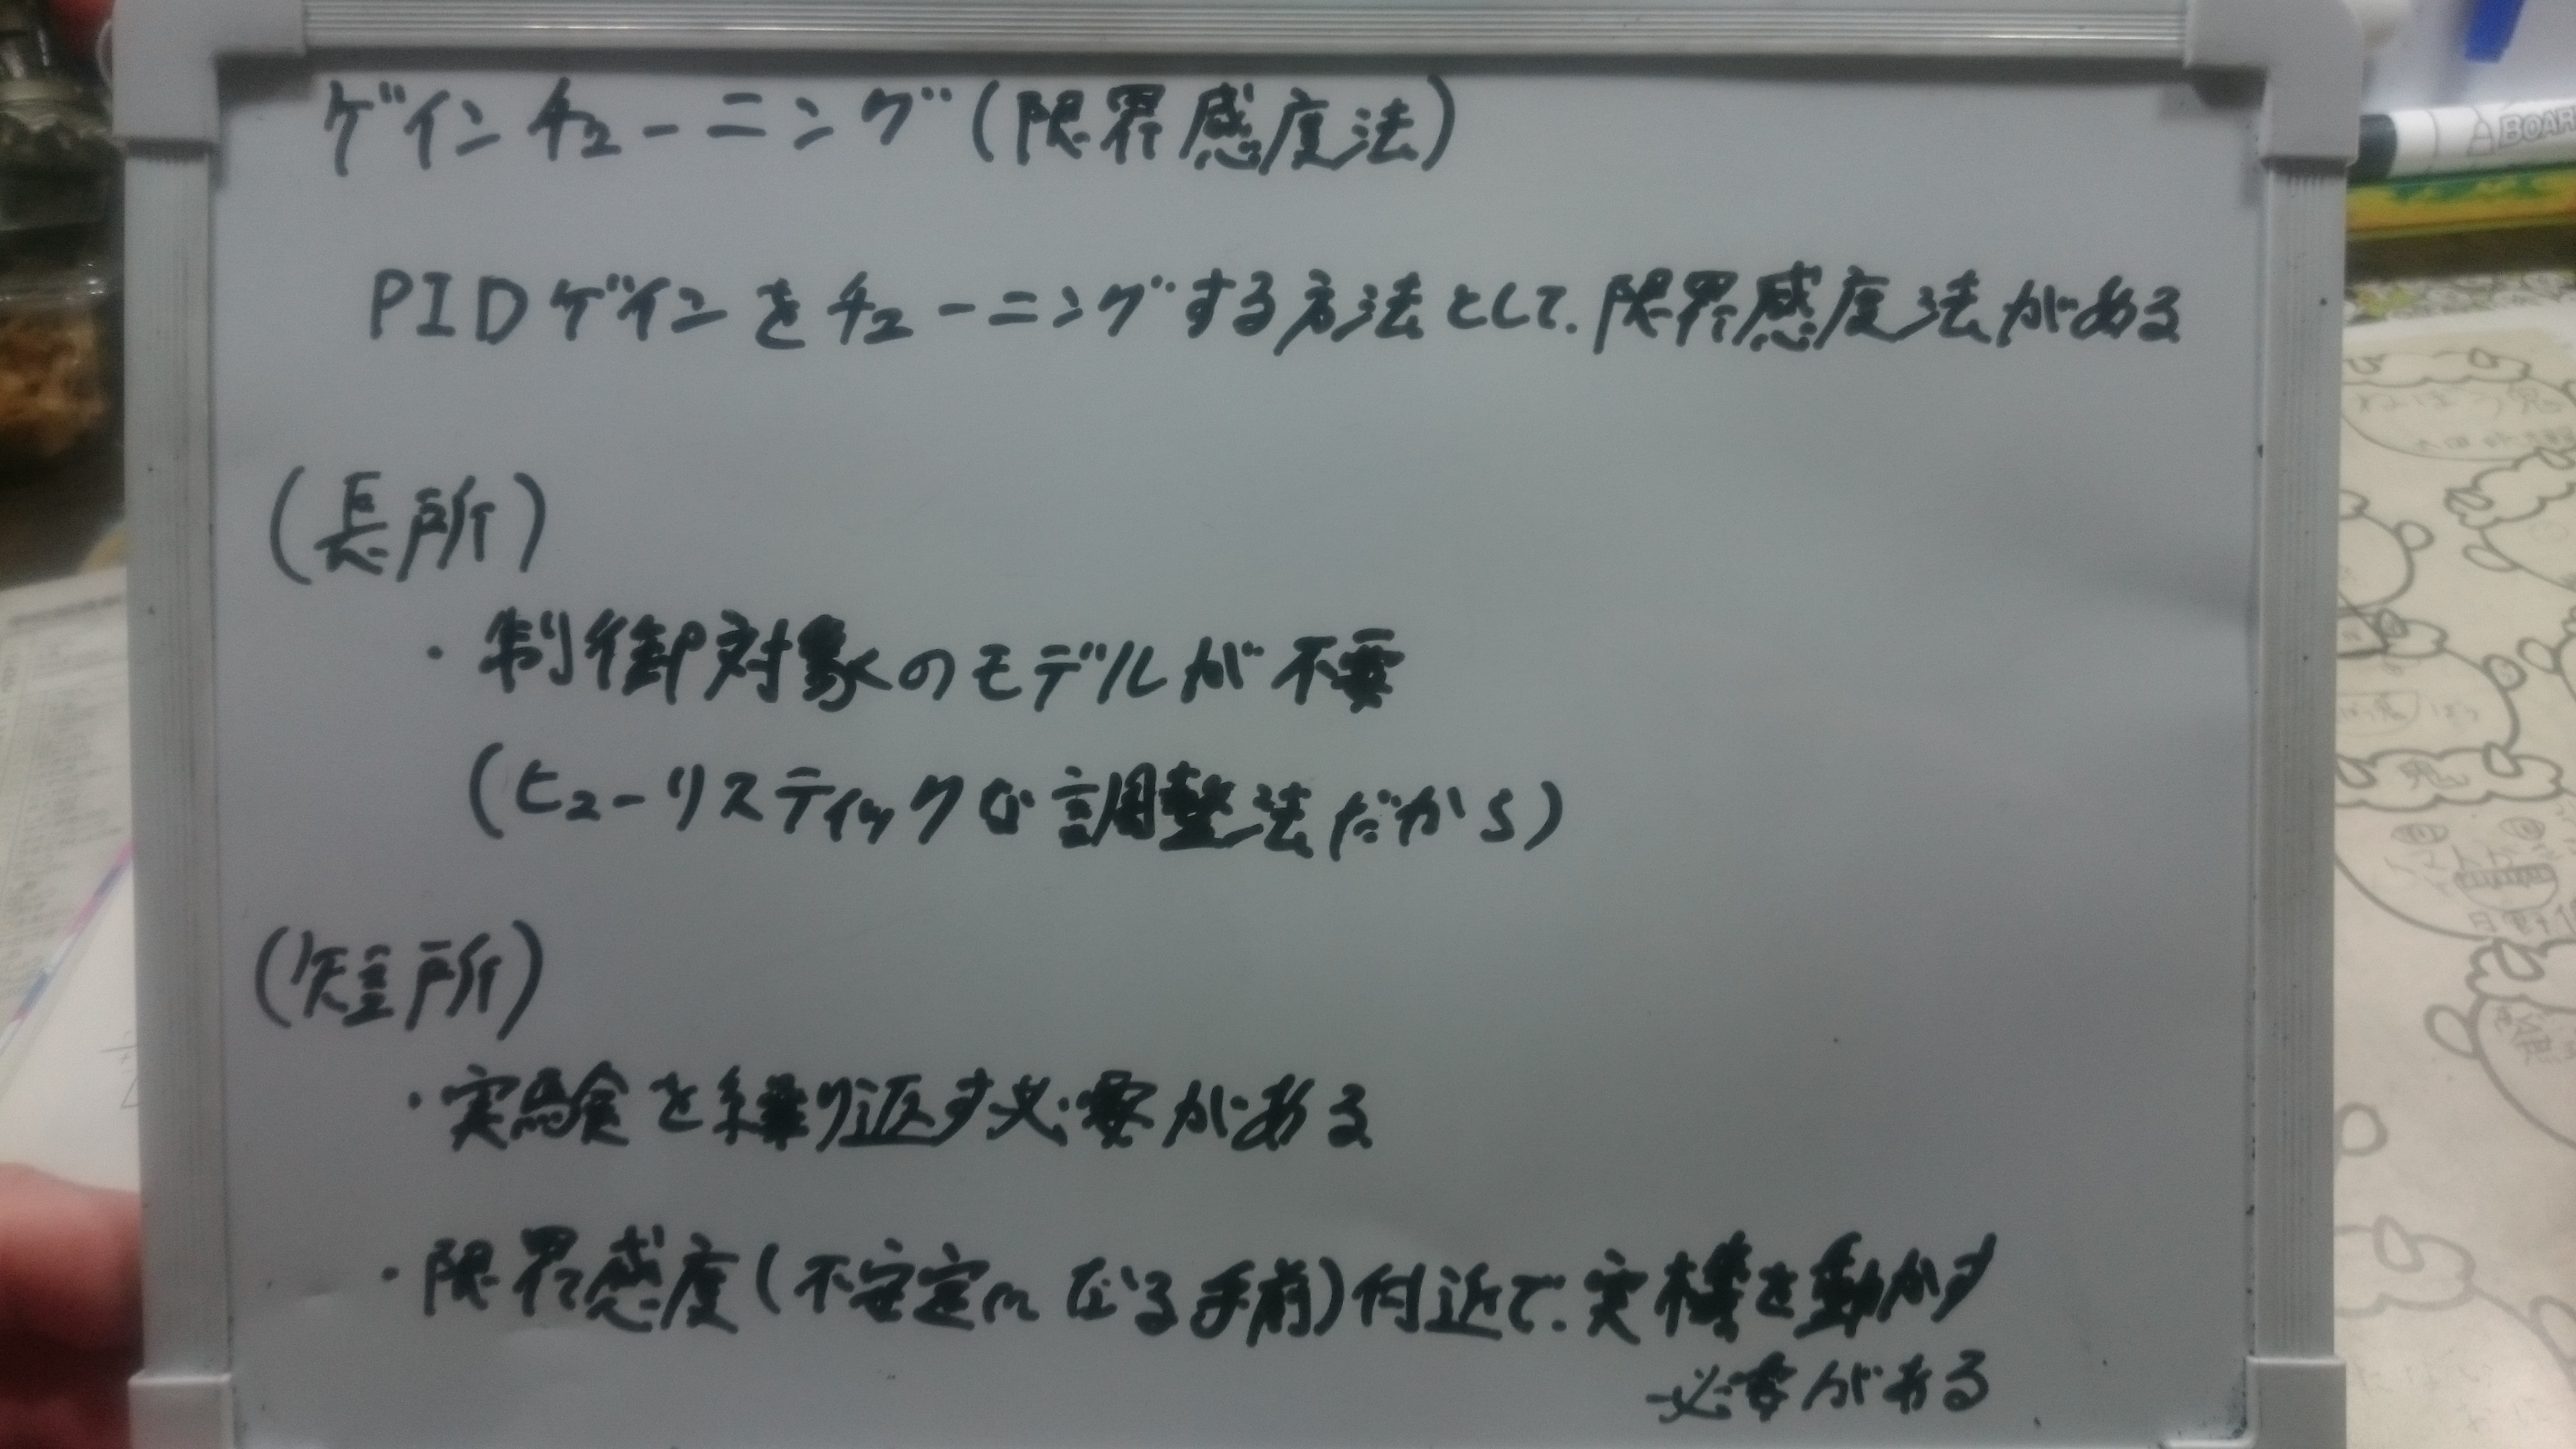 ゲインチューニング(限界感度法)
BOAR
PIDゲインをチューニングする方法として、限界感度法がある
(長所)
・制御対象のモデルが不要
(ヒューリスティックな調整法だから)
(短所)
・実験を繰り返す必要がある
・限界感度(不安定になる手前)付近で、実機を動かす
必要がある